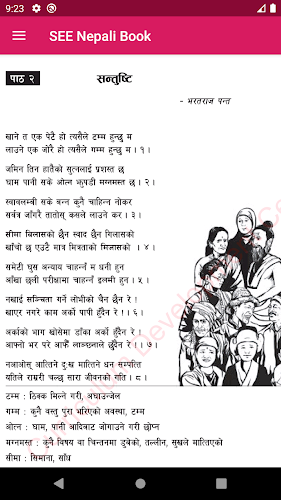 9:23
SEE Nepali Book
पाठ २
सन्तुष्टि
- भरतराज पन्त
खाने त एक पेटै हो त्यसैले टम्म हुन्छु म
लाउने एक जोरै हो त्यसैले गम्म हुन्छु म । १ ।
जमिन तिन हातैको सुत्नलाई प्रशस्त छ
घाम पानी सके ओत्न झुपडी मग्नमस्त छ । २ ।
स्वावलम्बी सके बन्न कुनै चाहिन्न नोकर
सर्वत्र जाँगरै तातोस् कसले लाउने कर । ३ ।
सीमा बिलासको छैन स्वाद छैन गिलासको
खाँचो छ एउटै मात्र मित्रताको मिलासको । ४ ।
समेटी घुस अन्याय चाहन्नँ म धनी हुन
आँखा छली परीक्षामा चाहन्नँ इलमी हुन । ५ ।
नखाई सञ्चिता गर्ने लोभीको चैन छैन रे !
खाएर नगरे काम अर्को पापी हुँदैन रे ! । ६ ।
अर्काको भाग खोसेमा डाँका अर्को हुँदैन रे !
आफ्नो भर परे आफैँ लाञ्छनाले छुँदैन रे ! । ७ ।
नआओस् आत्तिने दुःख मात्तिने धन सम्पत्ति
यतिले राम्ररी चल्छ सारा जीवनको गति । ८ ।
टम्म : ठिक्क मिल्ने गरी, अघाउन्जेल
गम्म : कुनै वस्तु पुरा भरिएको अवस्था, टम्म
ओत्न : घाम, पानी आदिबाट जोगाउने गरी छोप्न
मग्नमस्त : कुनै विषय वा चिन्तनमा डुबेको, तल्लीन, सुखले मात्तिएको
सीमा : सिमाना, साँध